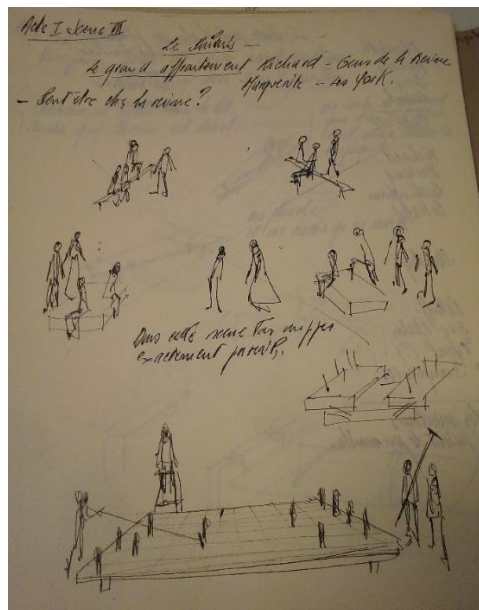 Acte I Scene III
Le Palais —
Le grand appartement Richard – Gens de la Reine
Marguerite – Les York.
– Peut être chez la reine ?
Dans cette scene les
exactement